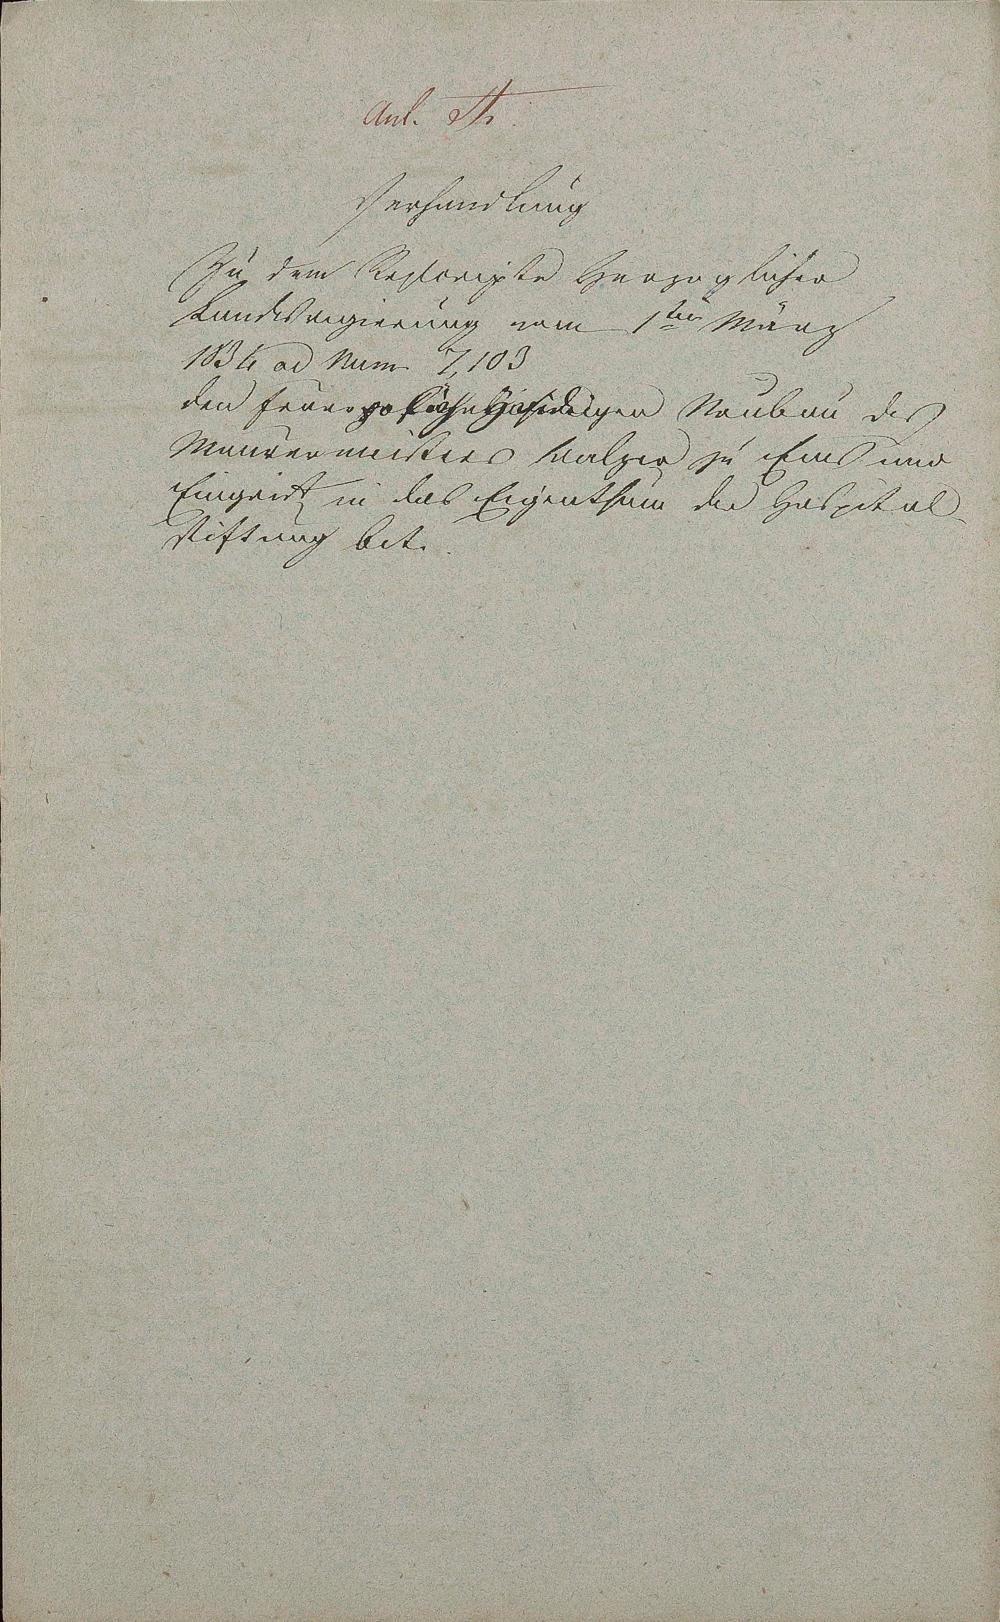 Anl.
Verhandlung
Zu dem Rescripte Herzoglicher
Landesregierung vom 1ten März
1834 ad Num 7,103
den feuerpolizeiwidrigen Neubau des
Maurermeisters Balzer zu Ems und
Eingriff in das Eigenthum der Hospital
Stiftung bet.